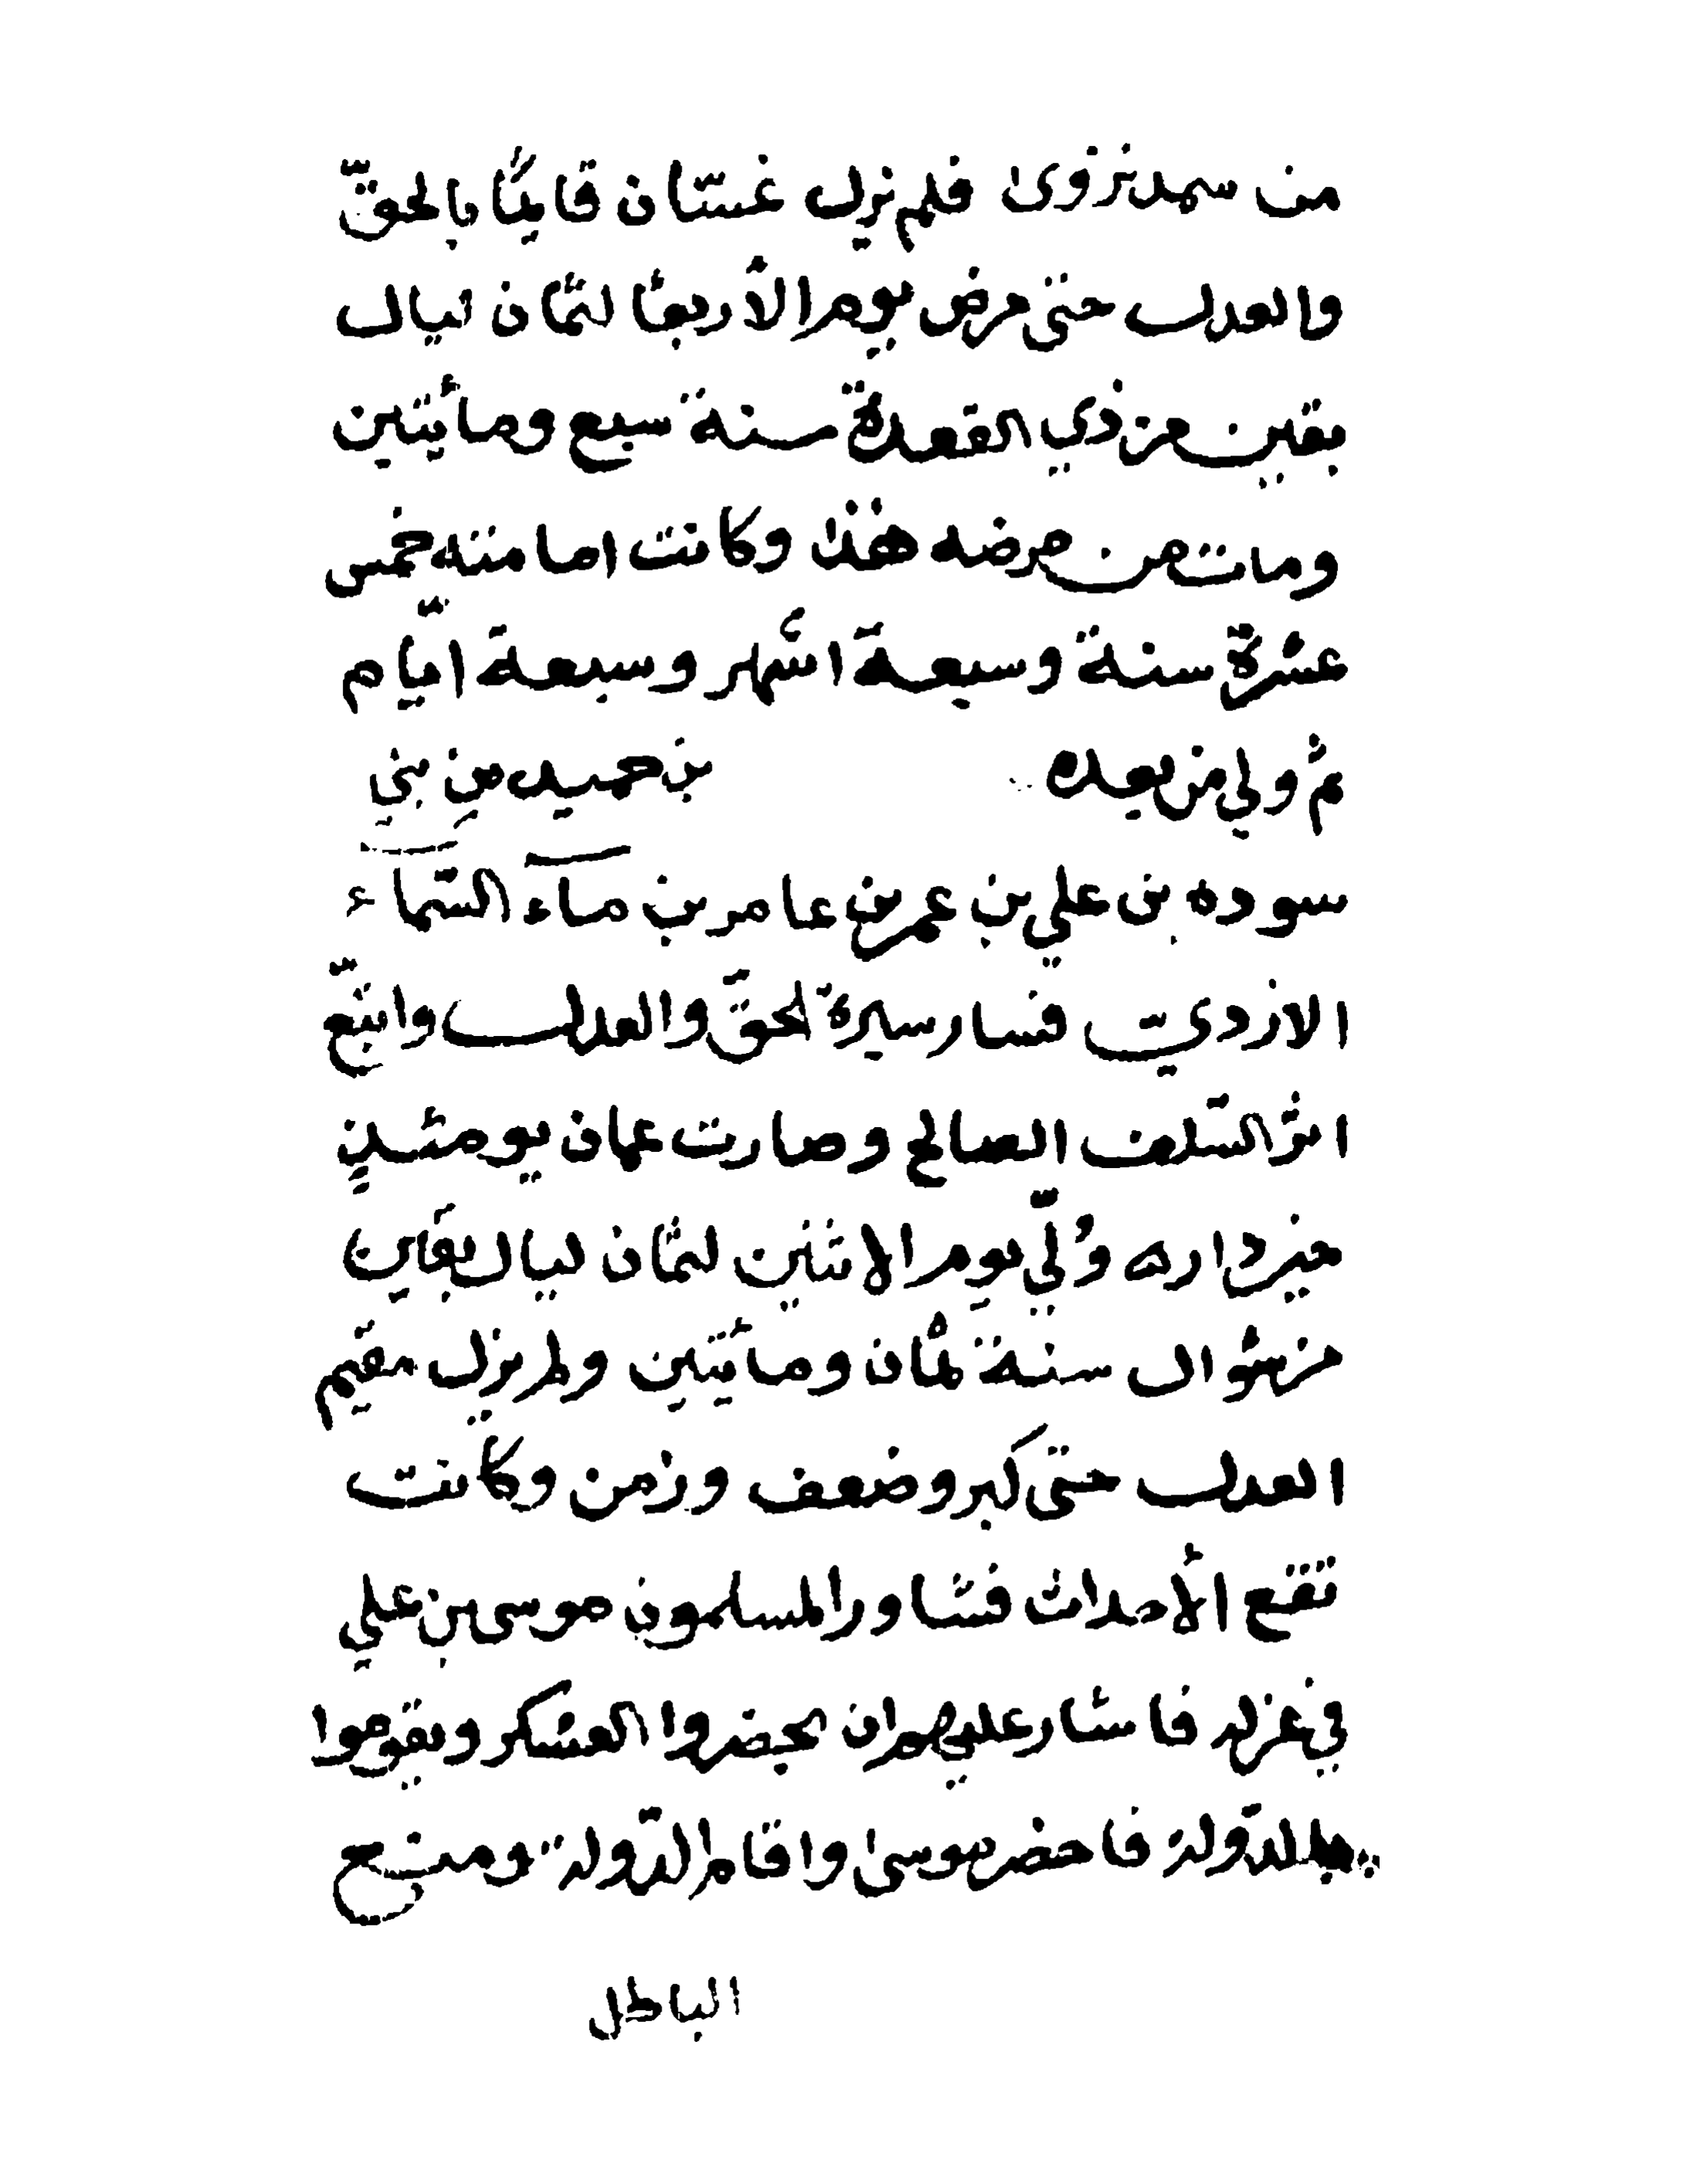 من سمد نزوى فلم يزل غسّان قايمًا بالحقّ
والعدل حتى مرض يوم الأربعا لثمان ليال
بقين من ذي القعدة سنة سبع ومأيتين
ومات من مرضه هذا وكانت امامته خمس
عشرة سنة وسبعة اشهر وسبعة ايّام
ثم ولي من بعده بن حميد من بني
سوده بن علي بن عمر بن عامر بن مآء السّمآء
الازدي فسار سيرة الحقّ والعدل واتبّع
اثر السّلف الصالح وصارت عمان يومئذٍ
خير داره وُلّي يوم الاثنين لثمان ليال بقين
من شوال سنة ثمان ومأيتين ولم يزل مقيم
العدل حتى كبر وضعف وزمن وكانت
تقع الأحداث فشاور المسلمون موسى بن علي
في عزله فاشار عليهم ان يحضروا العسكر ويقوموا
بالدّولة فاحضر موسى واقام الدّولة ومنع
الباطل